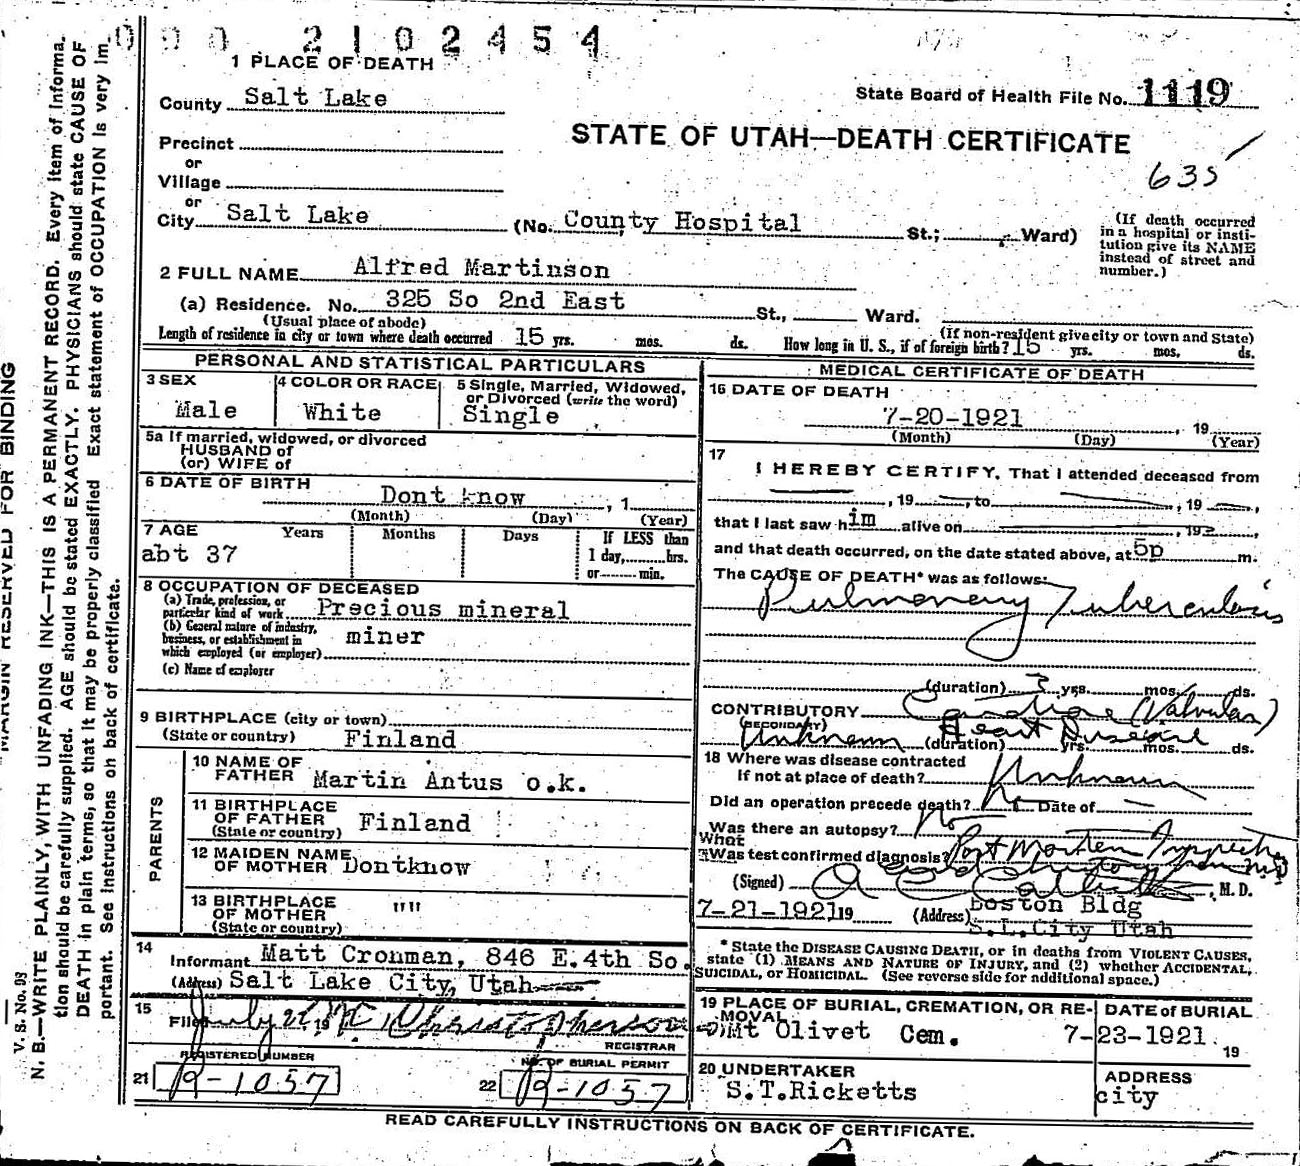 2102454
1 PLACE OF DEATH
County Salt Lake
State Board of Health File No. 1119
STATE OF UTAH—DEATH CERTIFICATE
635
Precinct
or
Village
or
City Salt Lake (No. County Hospital St.; Ward)
(If death occurred
in a hospital or insti-
tution give its NAME
instead of street and
number.)
2 FULL NAME Alfred Martinson
(a) Residence. No. 325 So 2nd East St., Ward.
(Usual place of abode) (If non-resident give city or town and State)
Length of residence in city or town where death occurred 15 yrs. mos. ds. How long in U. S., if of foreign birth? 15 yrs. mos. ds.
PERSONAL AND STATISTICAL PARTICULARS
3 SEX
Male
4 COLOR OR RACE
White
5 Single, Married, Widowed,
or Divorced (write the word)
Single
5a If married, widowed, or divorced
HUSBAND of
(or) WIFE of
6 DATE OF BIRTH Dont know , 1
(Month) (Day) (Year)
7 AGE Years Months Days
abt 37
If LESS than
1 day, hrs.
or min.
8 OCCUPATION OF DECEASED
(a) Trade, profession, or
particular kind of work Precious mineral
(b) General nature of industry,
business, or establishment in
which employed (or employer) miner
(c) Name of employer
9 BIRTHPLACE (city or town)
(State or country) Finland
PARENTS
10 NAME OF
FATHER Martin Antus o.k.
11 BIRTHPLACE
OF FATHER
(State or country) Finland
12 MAIDEN NAME
OF MOTHER Dontknow
13 BIRTHPLACE
OF MOTHER
(State or country) """
14
Informant Matt Cronman, 846 E.4th So.
(Address) Salt Lake City, Utah
15
Filed July 21 19
REGISTRAR
REGISTERED NUMBER
21 R-1057
NO. OF BURIAL PERMIT
22 R-1057
MEDICAL CERTIFICATE OF DEATH
16 DATE OF DEATH
7-20-1921 , 19
(Month) (Day) (Year)
17
I HEREBY CERTIFY, That I attended deceased from
, 19 , to , 19 ,
that I last saw him alive on , 192
and that death occurred, on the date stated above, at 5p m.
The CAUSE OF DEATH* was as follows:
Pulmonary Tuberculosis
(duration) 3 yrs. mos. ds.
CONTRIBUTORY Cardiac (Valvular)
(SECONDARY) Heart Disease
Unknown (duration) yrs. mos. ds.
18 Where was disease contracted
if not at place of death? Unknown
Did an operation precede death? No Date of —
Was there an autopsy? No
What
Was test confirmed diagnosis? Post Mortem Inspection
(Signed) , M. D.
7-21-1921 19 (Address) Boston Bldg
S.L.City Utah
* State the DISEASE CAUSING DEATH, or in deaths from VIOLENT CAUSES,
state (1) MEANS AND NATURE OF INJURY, and (2) whether ACCIDENTAL,
SUICIDAL, or HOMICIDAL. (See reverse side for additional space.)
19 PLACE OF BURIAL, CREMATION, OR RE-
MOVAL
Mt Olivet Cem.
DATE of BURIAL
7-23-1921 19
20 UNDERTAKER
S.T.Ricketts
ADDRESS
city
READ CAREFULLY INSTRUCTIONS ON BACK OF CERTIFICATE.
MARGIN RESERVED FOR BINDING
V. S. No. 93
N. B.—WRITE PLAINLY, WITH UNFADING INK—THIS IS A PERMANENT RECORD. Every item of informa-
tion should be carefully supplied. AGE should be stated EXACTLY. PHYSICIANS should state CAUSE OF
DEATH in plain terms, so that it may be properly classified. Exact statement of OCCUPATION is very im-
portant. See instructions on back of certificate.